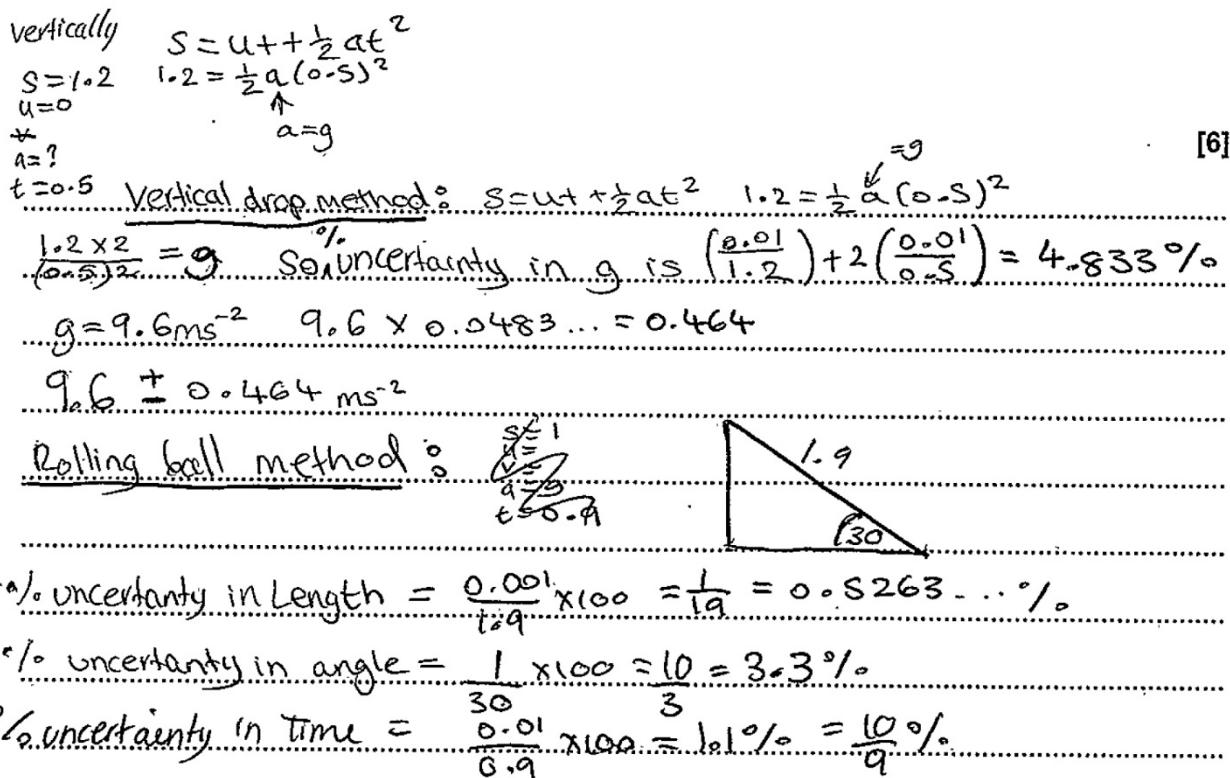 vertically
s = ut + ½ at²
s = 1.2
1.2 = ½ a (0.5)²
u = 0
↑
a = g
v
a = ?
[6]
t = 0.5
= g
Vertical drop method: s = ut + ½ at² 1.2 = ½ a (0.5)²
1.2 × 2 / (0.5)² = g So, % uncertainty in g is (0.01/1.2) + 2(0.01/0.5) = 4.833%
g = 9.6 ms⁻² 9.6 × 0.0483... = 0.464
9.6 ± 0.464 ms⁻²
Rolling ball method:
s = 1
u =
v =
a = g
t = 0.9
1.9
30
% uncertanty in Length = 0.001/1.9 × 100 = 1/19 = 0.5263...%
% uncertanty in angle = 1/30 × 100 = 10/3 = 3.3%
% uncertainty in Time = 0.01/0.9 × 100 = 1.1% = 10/9 %